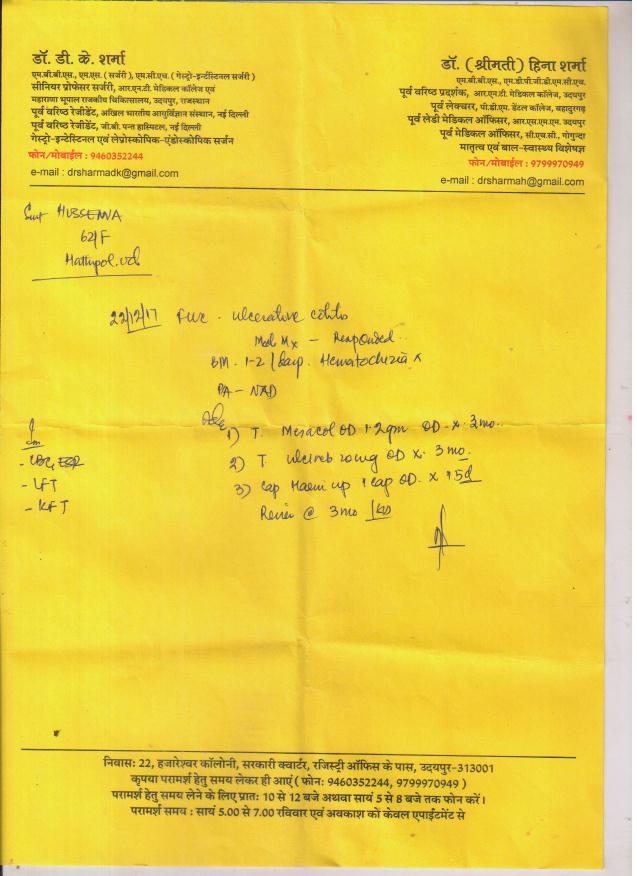 डॉ. डी. के. शर्मा
एम.बी.बी.एस., एम.एस. ( सर्जरी ), एम.सी.एच. ( गेस्ट्रो-इन्टेंस्टिनल सर्जरी )
सीनियर प्रोफेसर सर्जरी, आर.एन.टी. मेडिकल कॉलेज एवं
महाराणा भूपाल राजकीय चिकित्सालय, उदयपुर, राजस्थान
पूर्व वरिष्ठ रेजीडेंट, अखिल भारतीय आयुर्विज्ञान संस्थान, नई दिल्ली
पूर्व वरिष्ठ रेजीडेंट, जी.बी. पन्त हास्पिटल, नई दिल्ली
गेस्ट्रो-इन्टेस्टिनल एवं लेप्रोस्कोपिक-एंडोस्कोपिक सर्जन
फोन/मोबाईल : 9460352244
e-mail : drsharmadk@gmail.com
डॉ. (श्रीमती) हिना शर्मा
एम.बी.बी.एस., एम.डी.पी.जी.डी.एम.सी.एच.
पूर्व वरिष्ठ प्रदर्शक, आर.एन.टी. मेडिकल कॉलेज, उदयपुर
पूर्व लेक्चरर, पी.डी.एम. डेंटल कॉलेज, बहादुरगढ़
पूर्व लेडी मेडिकल ऑफिसर, आर.एस.एम.एम. उदयपुर
पूर्व मेडिकल ऑफिसर, सी.एच.सी., गोगुन्दा
मातृत्व एवं बाल-स्वास्थ्य विशेषज्ञ
फोन/मोबाईल : 9799970949
e-mail : drsharmah@gmail.com
Smt HUSSENNA
62/F
Hattipol. Ud.
22/12/17 FUC . ulcerative colitis
Med Mx - Responded.
BM. 1-2 / day. Hematochezia x
PA - NAD
Adv
1) T. Mesacol OD 1.2gm OD x 3 mo.
2) T OD x 3 mo.
3) Cap 1 cap OD x 15d
Review @ 3 mo
- CBC, ESR
- LFT
- KFT
निवास: 22, हजारेश्वर कॉलोनी, सरकारी क्वार्टर, रजिस्ट्री ऑफिस के पास, उदयपुर-313001
कृपया परामर्श हेतु समय लेकर ही आएं ( फोन: 9460352244, 9799970949 )
परामर्श हेतु समय लेने के लिए प्रात: 10 से 12 बजे अथवा सायं 5 से 8 बजे तक फोन करें।
परामर्श समय : सायं 5.00 से 7.00 रविवार एवं अवकाश कों केवल एपाईटमेंट से